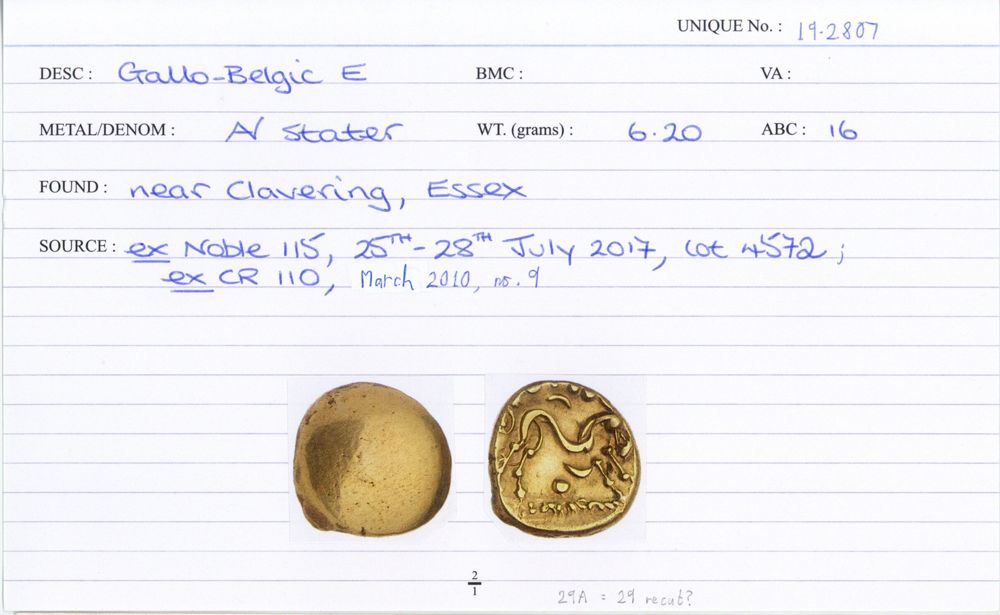 UNIQUE No. : 19·2807
DESC : Gallo-Belgic E BMC : VA :
METAL/DENOM : AV stater WT. (grams) : 6·20 ABC : 16
FOUND : near Clavering, Essex
SOURCE : ex Noble 115, 25TH - 28TH July 2017, lot 4572 ;
ex CR 110, March 2010, no. 9
2
1
29A = 29 recut?